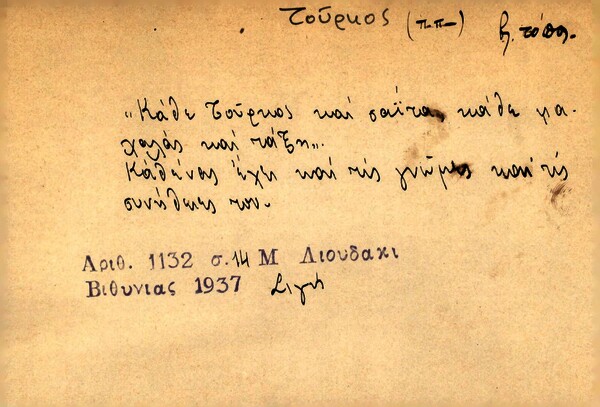 Τοῦρκος (π.π-) βλ. τόπος.
"Κάθε Τοῦρκος καί σαΐτα, κάθε μα-
χαλάς καί τάξη".
Καθένας ἔχει καί τίς γνῶμες καί τίς
συνήθειες του.
Αριθ. 1132 σ. 14 Μ Λιουδακι
Βιθυνιας 1937 Σιγή